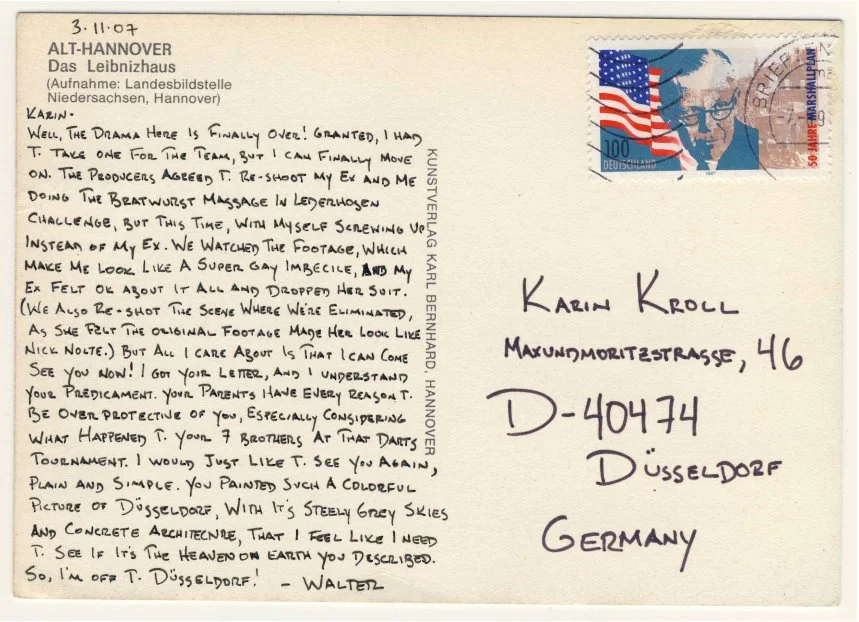 3.11.07
ALT-HANNOVER
Das Leibnizhaus
(Aufnahme: Landesbildstelle
Niedersachsen, Hannover)
KARIN-
WELL, THE DRAMA HERE IS FINALLY OVER! GRANTED, I HAD
T. TAKE ONE FOR THE TEAM, BUT I CAN FINALLY MOVE
ON. THE PRODUCERS AGREED T. RE-SHOOT MY EX AND ME
DOING THE BRATWURST MASSAGE IN LEDERHOSEN
CHALLENGE, BUT THIS TIME, WITH MYSELF SCREWING UP
INSTEAD OF MY EX. WE WATCHED THE FOOTAGE, WHICH
MAKE ME LOOK LIKE A SUPER GAY IMBECILE, AND MY
EX FELT OK ABOUT IT ALL AND DROPPED HER SUIT.
(WE ALSO RE-SHOT THE SCENE WHERE WE'RE ELIMINATED,
AS SHE FELT THE ORIGINAL FOOTAGE MADE HER LOOK LIKE
NICK NOLTE.) BUT ALL I CARE ABOUT IS THAT I CAN COME
SEE YOU NOW! I GOT YOUR LETTER, AND I UNDERSTAND
YOUR PREDICAMENT. YOUR PARENTS HAVE EVERY REASON T.
BE OVER PROTECTIVE OF YOU, ESPECIALLY CONSIDERING
WHAT HAPPENED T. YOUR 7 BROTHERS AT THAT DARTS
TOURNAMENT. I WOULD JUST LIKE T. SEE YOU AGAIN,
PLAIN AND SIMPLE. YOU PAINTED SUCH A COLORFUL
PICTURE OF DÜSSELDORF, WITH IT'S STEELY GREY SKIES
AND CONCRETE ARCHITECTURE, THAT I FEEL LIKE I NEED
T. SEE IF IT'S THE HEAVEN ON EARTH YOU DESCRIBED.
SO, I'M OFF T. DÜSSELDORF! - WALTER
KUNSTVERLAG KARL BERNHARD, HANNOVER
100
DEUTSCHLAND
50 JAHRE MARSHALLPLAN
1997
KARIN KROLL
MAXUNDMORITZSTRASSE, 46
D-40474
DÜSSELDORF
GERMANY